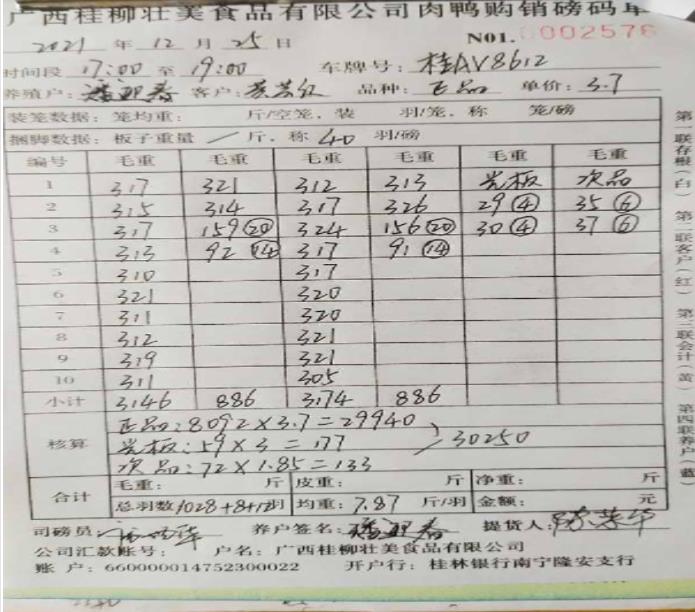 广西桂柳壮美食品有限公司肉鸭购销磅码单
2021 年 12 月 25 日 NO1. 0002576
时间段 17:00 至 19:00 车牌号: 桂AV8612
养殖户: 客户: 品种: 正品 单价: 3.7
装笼数据: 笼均重: 斤/空笼, 装 羽/笼, 称 笼/磅
捆脚数据: 板子重量 / 斤, 称 40 羽/磅
编号 毛重 毛重 毛重 毛重 毛重 毛重
1 317 321 312 313 光板 次品
2 315 314 317 326 29 ④ 35 ⑥
3 317 159 ⑳ 324 156 ⑳ 30 ④ 37 ⑥
4 313 92 ⑭ 317 91 ⑭
5 310 317
6 321 320
7 311 320
8 312 321
9 319 321
10 311 305
小计 3146 886 3174 886
核算
正品: 8092×3.7=29940
光板: 59×3=177 / 30250
次品: 72×1.85=133
合计
毛重: 斤 皮重: 斤 净重: 斤
总羽数 1028+8+12羽 均重: 7.87 斤/羽 金额: 元
司磅员: 养户签名: 提货人:
公司汇款账号: 户名: 广西桂柳壮美食品有限公司
账户: 660000014752300022 开户行: 桂林银行南宁隆安支行
第一联存根(白) 第二联客户(红) 第三联会计(黄) 第四联养户(蓝)